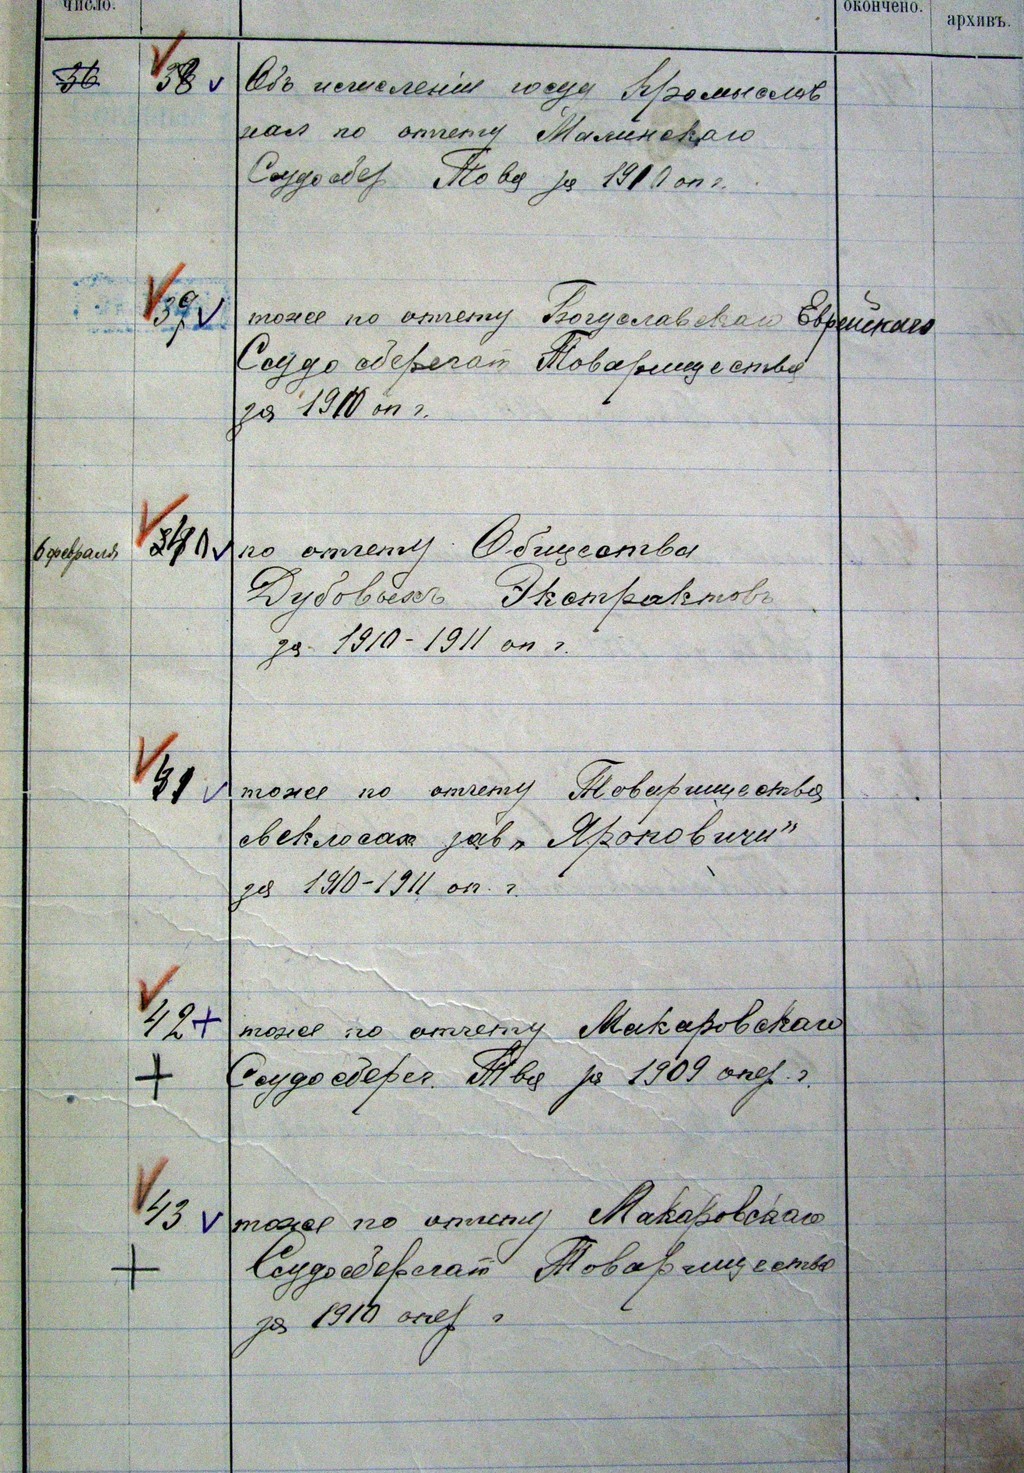 число.
окончено.
архивъ.
36 38 Объ исчисленіи госуд промыслов
нал по отчету Малинскаго
Ссудосбер Това за 1910 оп г.
39 тоже по отчету Богуславскаго Еврейскаго
Ссудо сберегат Товарищества
за 1910 оп г.
6 февраля 40 по отчету Общества
Дубовыхъ Экстрактовъ
за 1910-1911 оп г.
41 тоже по отчету Товарищества
свеклосах зав „Яроповичи"
за 1910-1911 оп. г.
42 тоже по отчету Макаровскаго
Ссудосберег. Тва за 1909 опер. г.
43 тоже по отчету Макаровскаго
Ссудосберегат Товарищества
за 1910 опер г